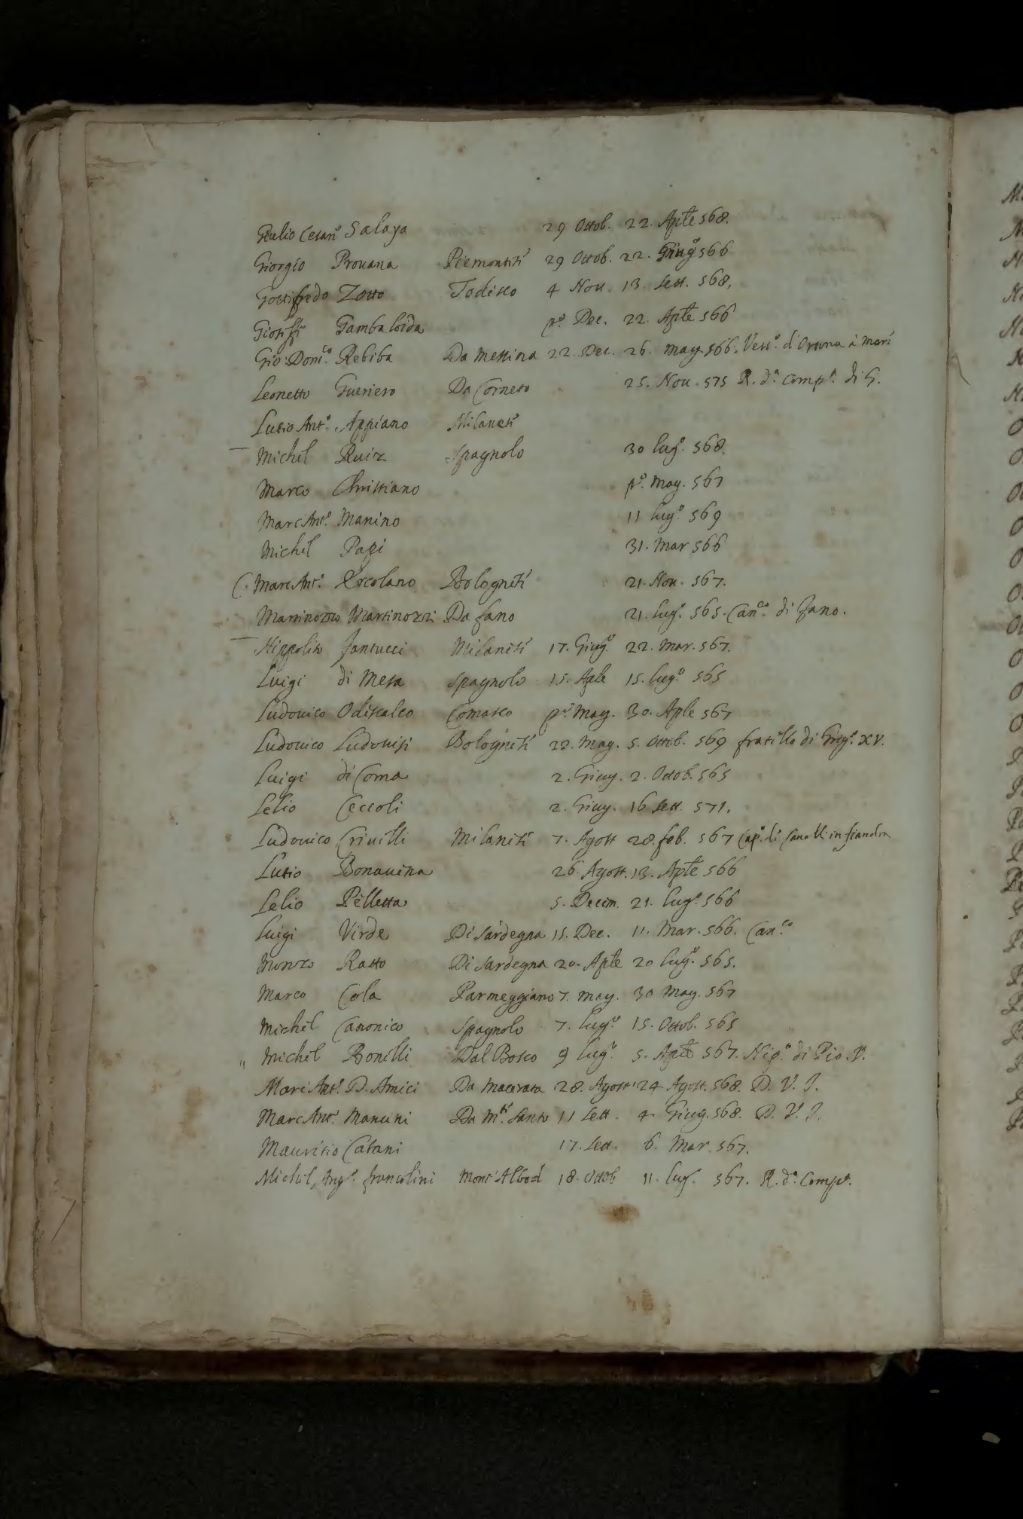 Giulio Cesare Salaya 29 Ottob. 22. Aple 568.
Giorgio Provana Piemontese 29 Ottob. 22. Giugº 566
Gottifredo Zotto Todisco 4 Nov. 13 Sett. 568.
Gioseffe Gambaloida pº Dec. 22. Aple 566
Gio: Domco Rebiba Da Messina 22. Dec. 26. may. 566. Vescº. d'Ortona à mare
Leonetto Gueriero Da Corneto 25. Nov. 575 R. dª. Compª. di G.
Lutio Antº. Appiano Milanese
Michel Ruiz Spagnolo 30 lugº. 568.
Marco Christiano pº. may. 567
MarcAntº. Manino 11 lugº 569
Michel Papi 31. Mar 566
(. MarcAntº. Ercolano Bolognese 21. Nov. 567.
Martinozzo Martinozzi Da fano 21. lugº. 565. Canco. di fano.
Hippolito fantucci Milanese 17. Giugº 22. mar. 567.
Luigi di Mesa Spagnolo 15. Aple 15. lugº 565
Ludovico Odiscalco Comasco pº. May. 30. Aple 567
Ludovico Ludovisi Bolognese 22. may. 5. Ottob. 569 fratello di Gregº. XV.
Luigi di Coma 2. Giug. 2. Ottob. 565
Lelio Ceccoli 2. Giug. 16 Sett. 571.
Ludovico Crivelli Milanese 7. Agost 28. feb. 567 Capº. di Cavalli in fiandra
Lutio Bonavina 26 Agost. 13. Aple 566
Lelio Pelletta 5. Decem. 21. lugº 566
Luigi Virde Di Sardegna 15. Dec. 11. Mar. 566. Canco
Monzo Rasso Di Sardegna 20. Aple 20 lugº. 565.
Marco Cola Parmeggiano 7. may. 30 may. 567
Michel Canonico Spagnolo 7. lugº. 15. Ottob. 565
„ Michel Bonelli Dal Bosco 9 lugº. 5. Aple 567. Nipº. di Pio V.
MarcAntº. D. Amici Da macerata 28. Agost 24. Agost. 568. D. V. J.
MarcAntº. Manuni Da Mte. Santo 11 Sett. 4. Giug. 568. D. V. J.
Mauritio Catani 17. Sett. 6. Mar. 567.
Michel Angº. francolini Mont'Albod 18. Ottob 11. lugº. 567. R. dª. Compª.